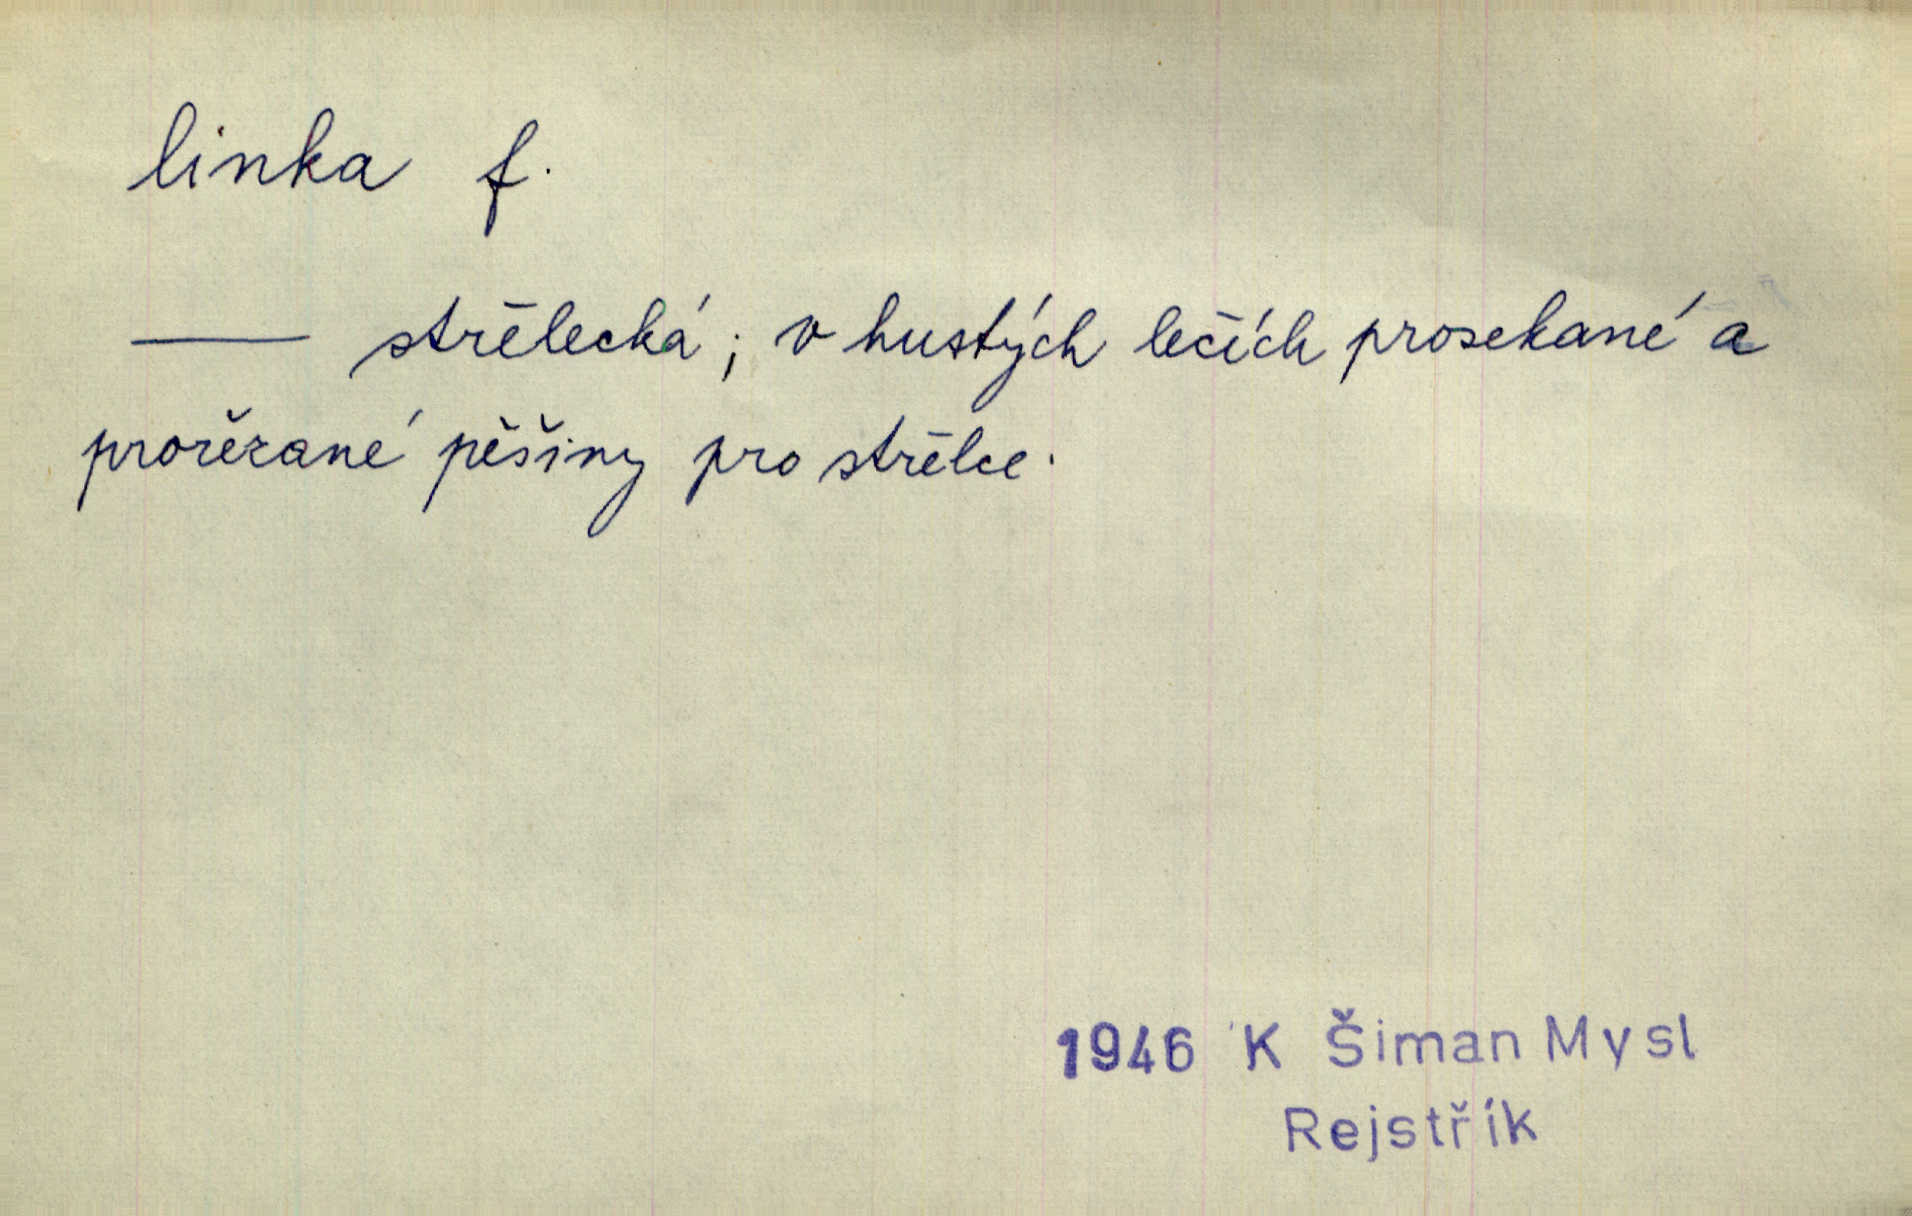 linka f.
—— střelecká; v hustých lečích prosekané a
prořezané pěšiny pro střelce.
1946 K Šiman Mysl
Rejstřík